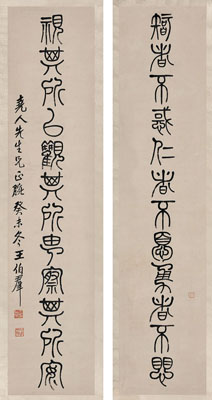 智者不惑仁者不憂勇者不懼
視其所以觀其所由察其所安
堯人先生兄正疑 癸未冬 王伯羣